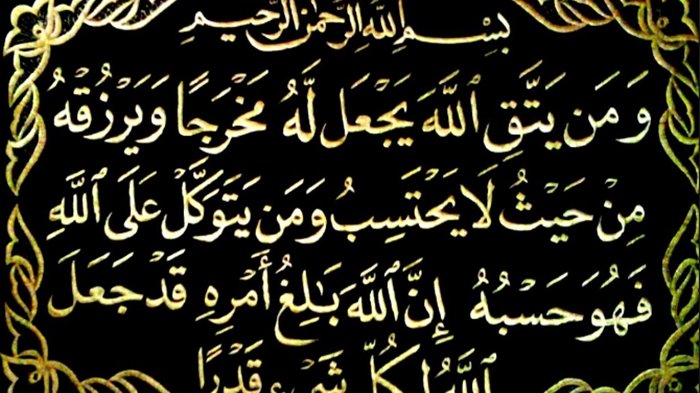 بِسْمِ اللَّهِ الرَّحْمَنِ الرَّحِيمِ
وَمَن يَتَّقِ ٱللَّهَ يَجْعَل لَّهُ مَخْرَجًا وَيَرْزُقْهُ
مِنْ حَيْثُ لَا يَحْتَسِبُ وَمَن يَتَوَكَّلْ عَلَى ٱللَّهِ
فَهُوَ حَسْبُهُ إِنَّ ٱللَّهَ بَٰلِغُ أَمْرِهِ قَدْ جَعَلَ
ٱللَّهُ لِكُلِّ شَىْءٍ قَدْرًا